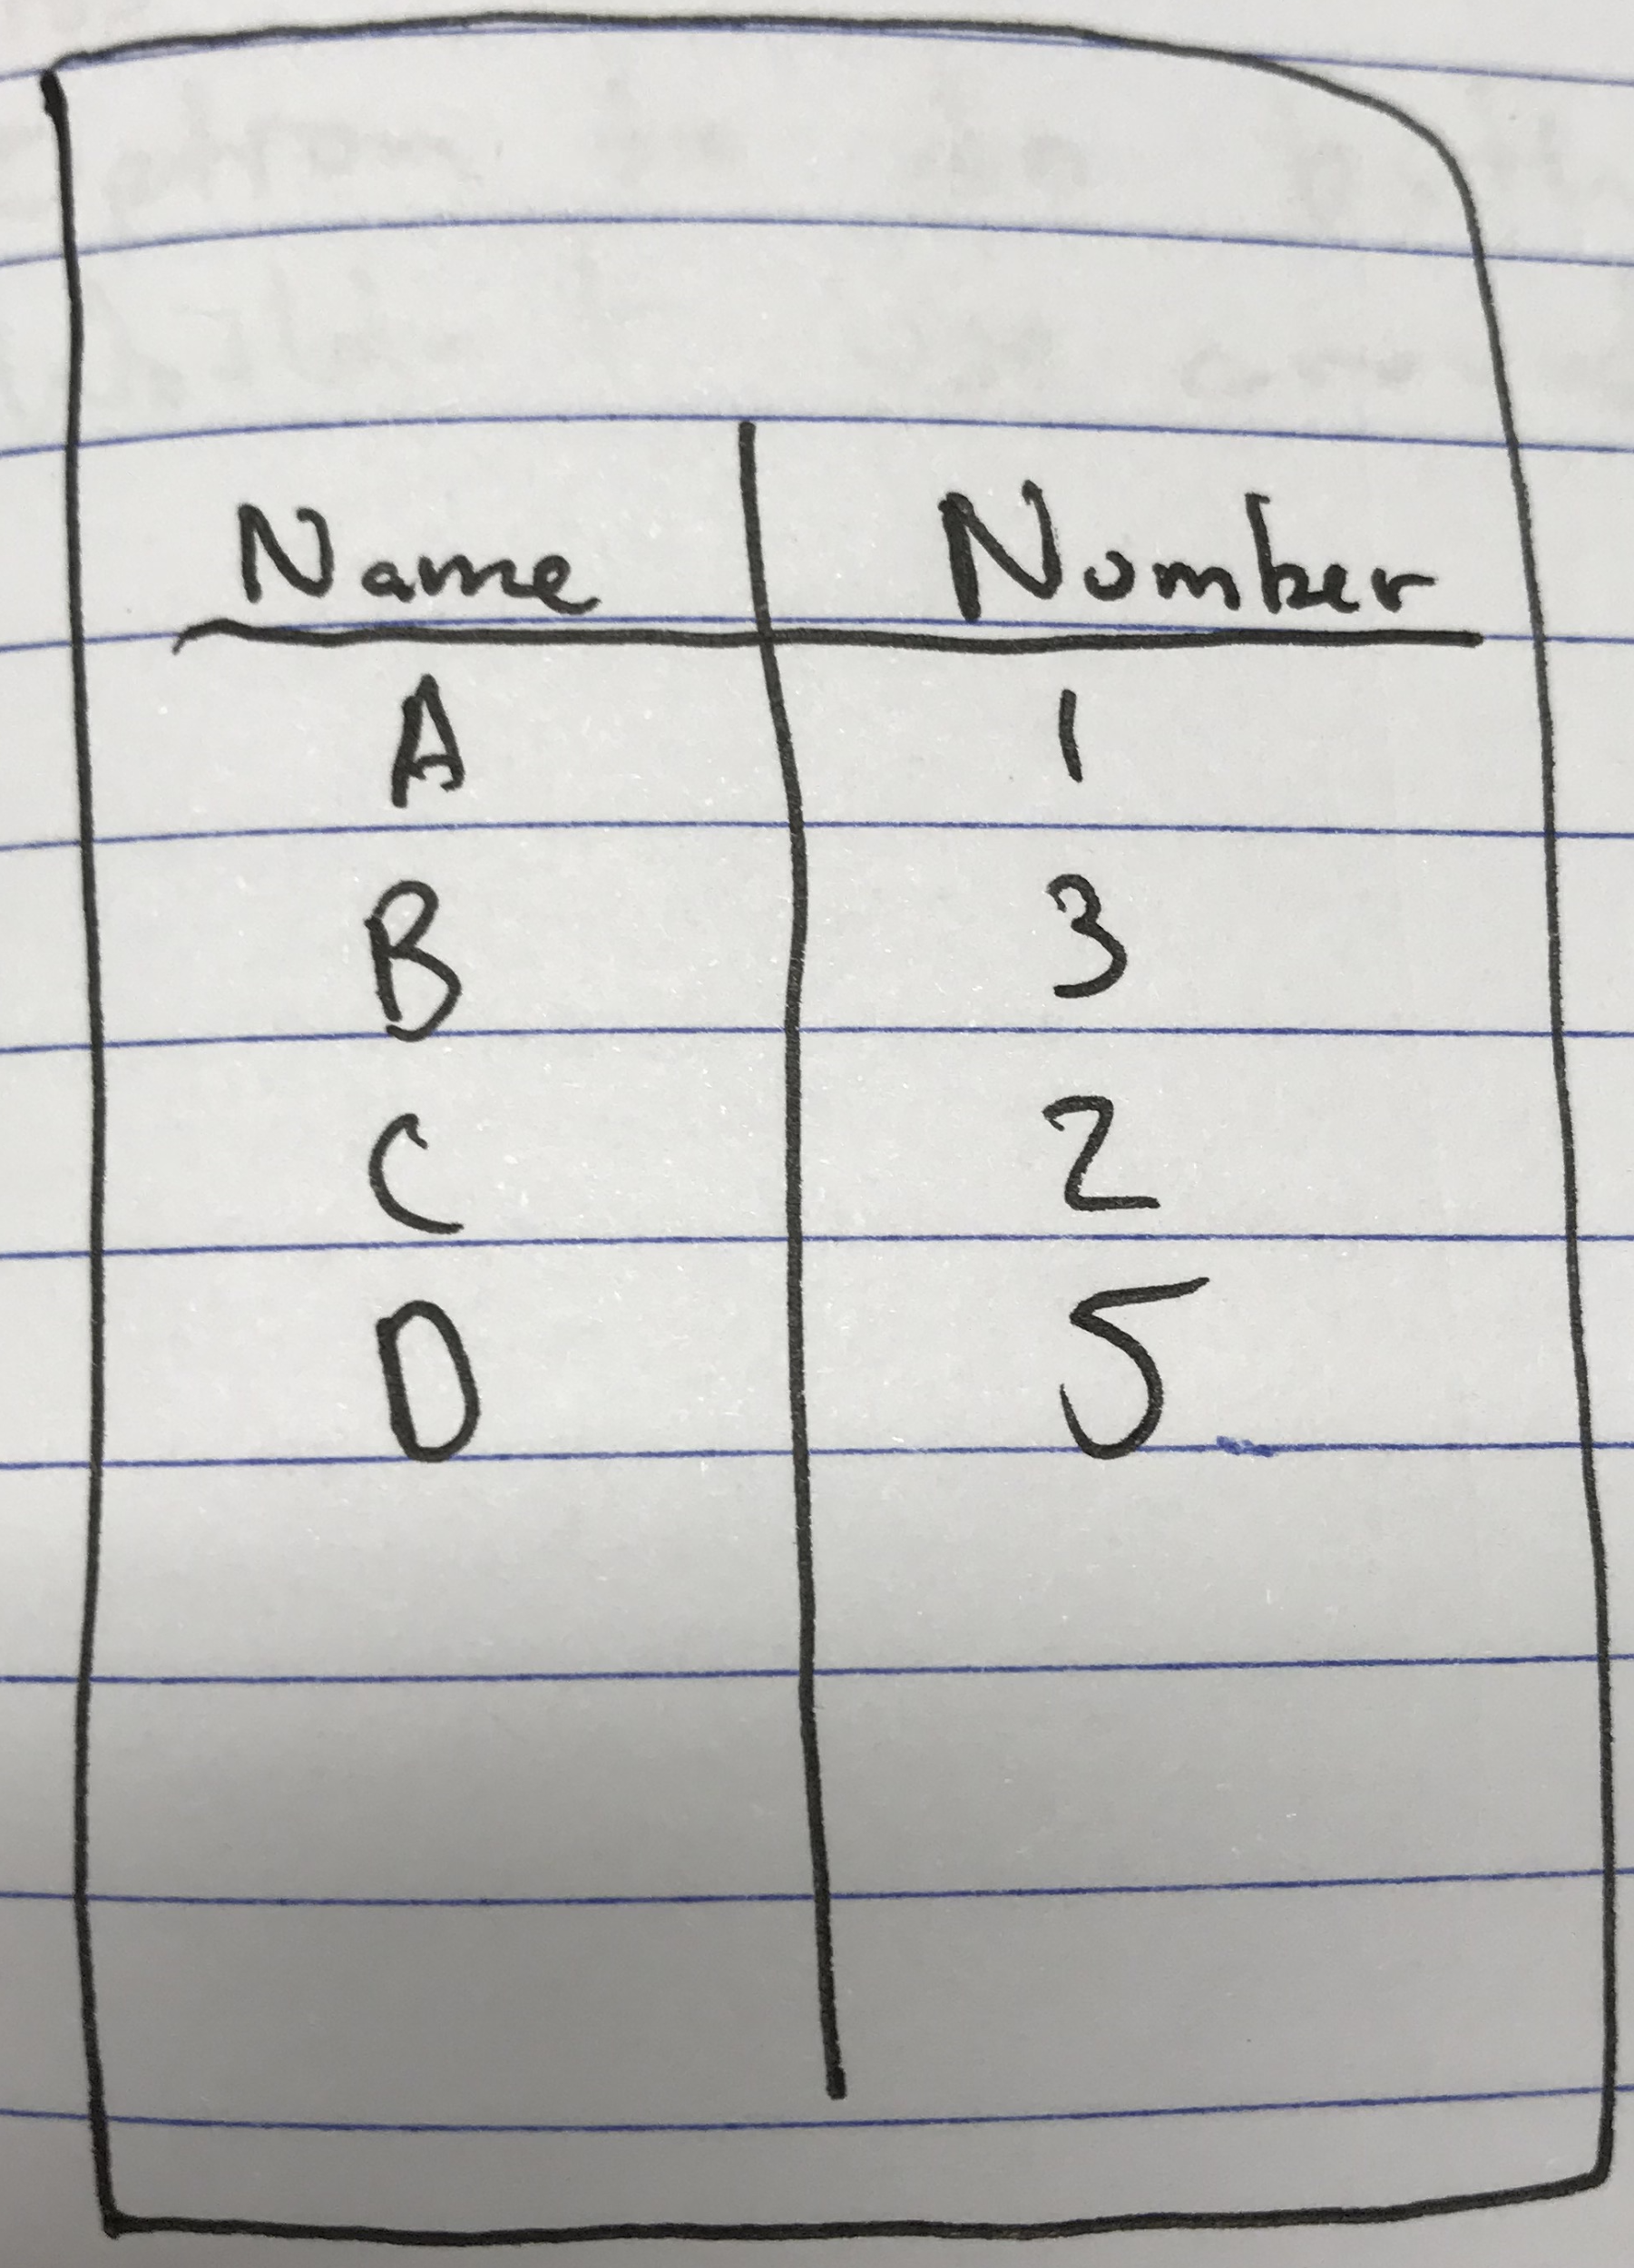 Name Number
A 1
B 3
C 2
D 5